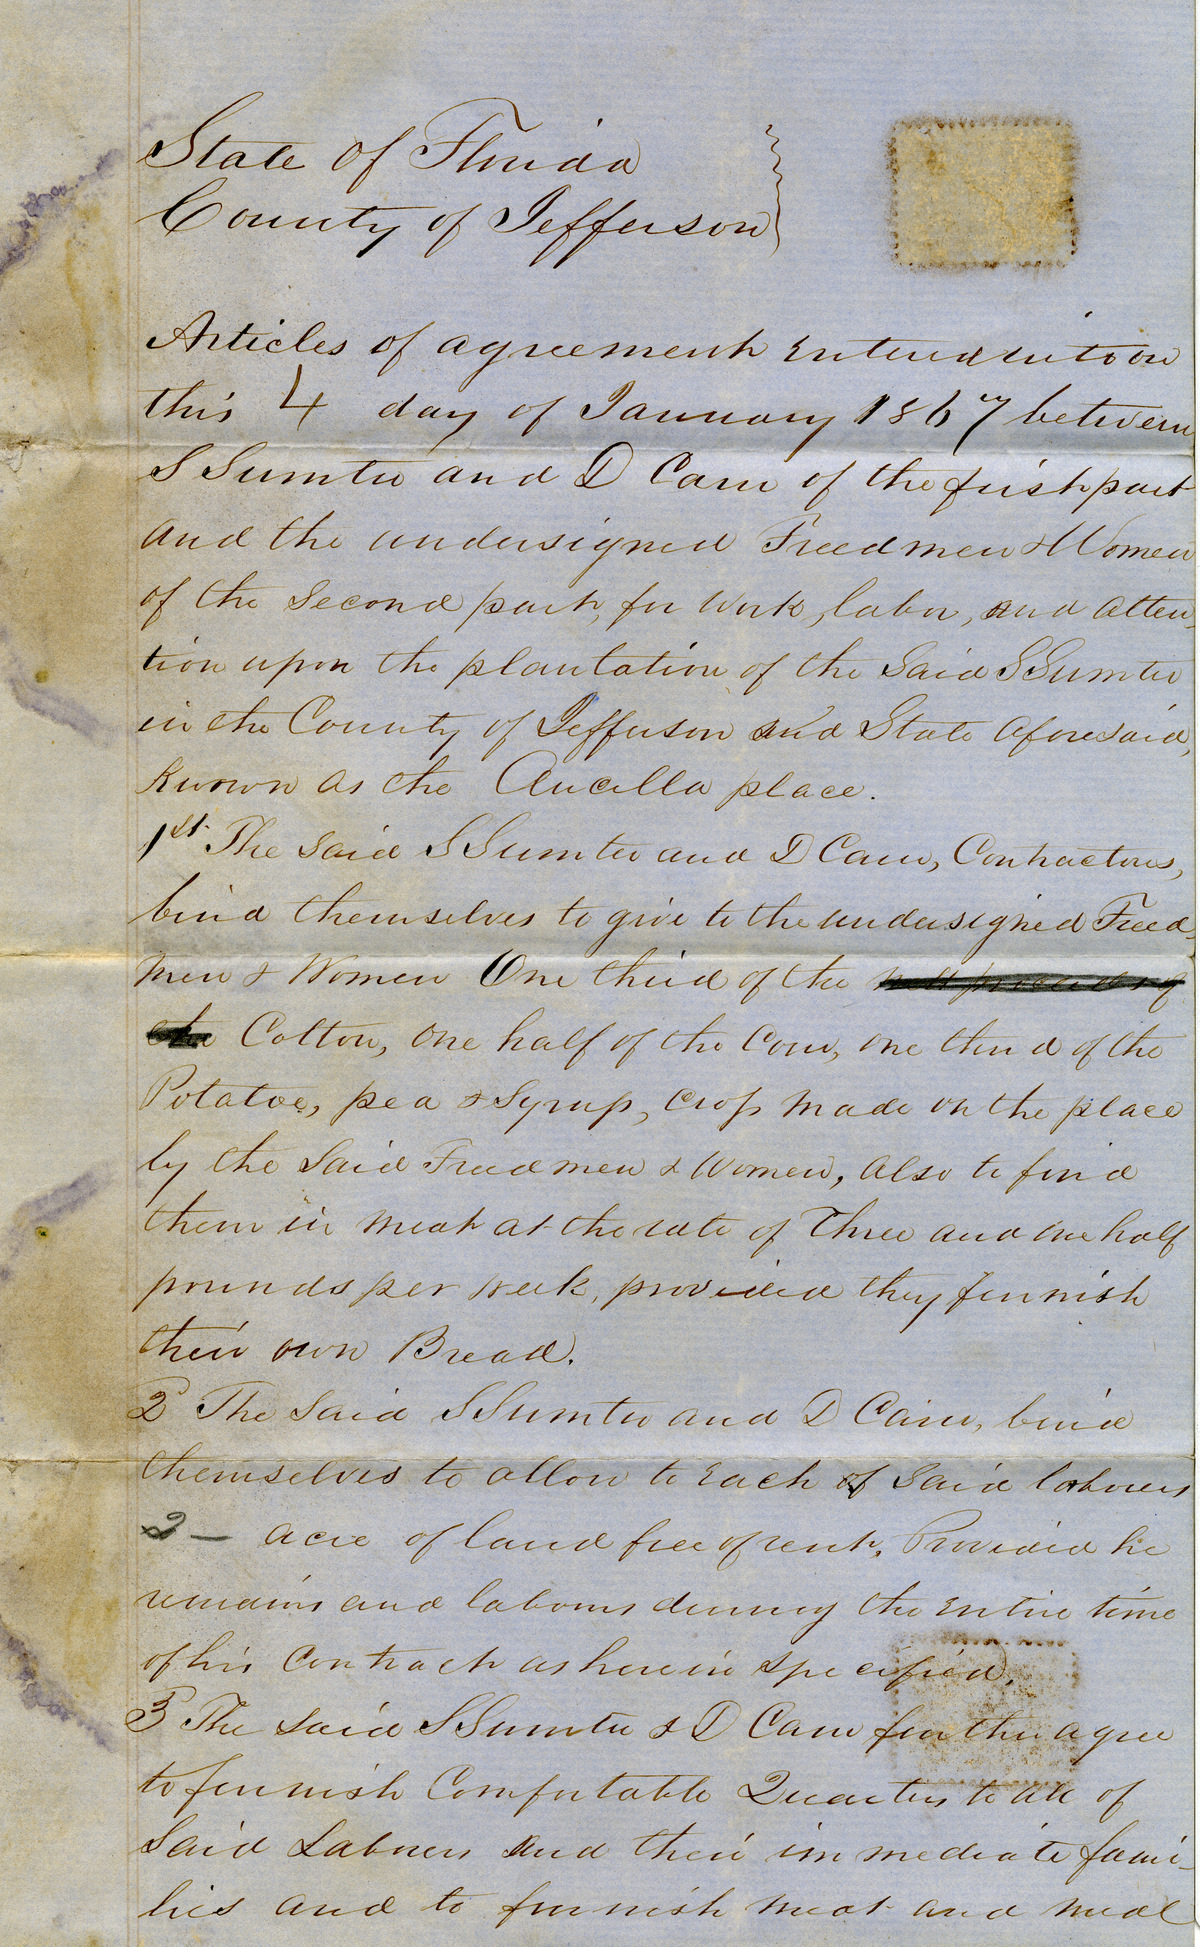 State of Florida
County of Jefferson
Articles of agreement entered into on
this 4 day of January 1867 between
S Sumter and D Cam of the first part
and the undersigned Freedmen & Women
of the Second part, for work, labor, and atten-
tion upon the plantation of the Said S Sumter
in the County of Jefferson and State aforesaid,
known as the Aucilla place.
1st The Said S Sumter and D Cam, Contractors,
bind themselves to give to the undersigned Freed-
men & Women One third of the nett proceeds of
the Cotton, one half of the Corn, one third of the
Potatoe, pea & Syrup, crop made on the place
by the Said Freedmen & Women, also to find
them in meat at the rate of Three and one half
pounds per week, provided they furnish
their own Bread.
2 The Said S Sumter and D Cam, bind
themselves to allow to each of Said laborers
2 — acre of land free of rent, Provided he
remains and labours during the entire time
of his contract as herein specified,
3 The Said S Sumter & D Cam further agree
to furnish Comfortable Quarters to all of
Said Laborers and their immediate fami-
lies and to furnish meat and meal